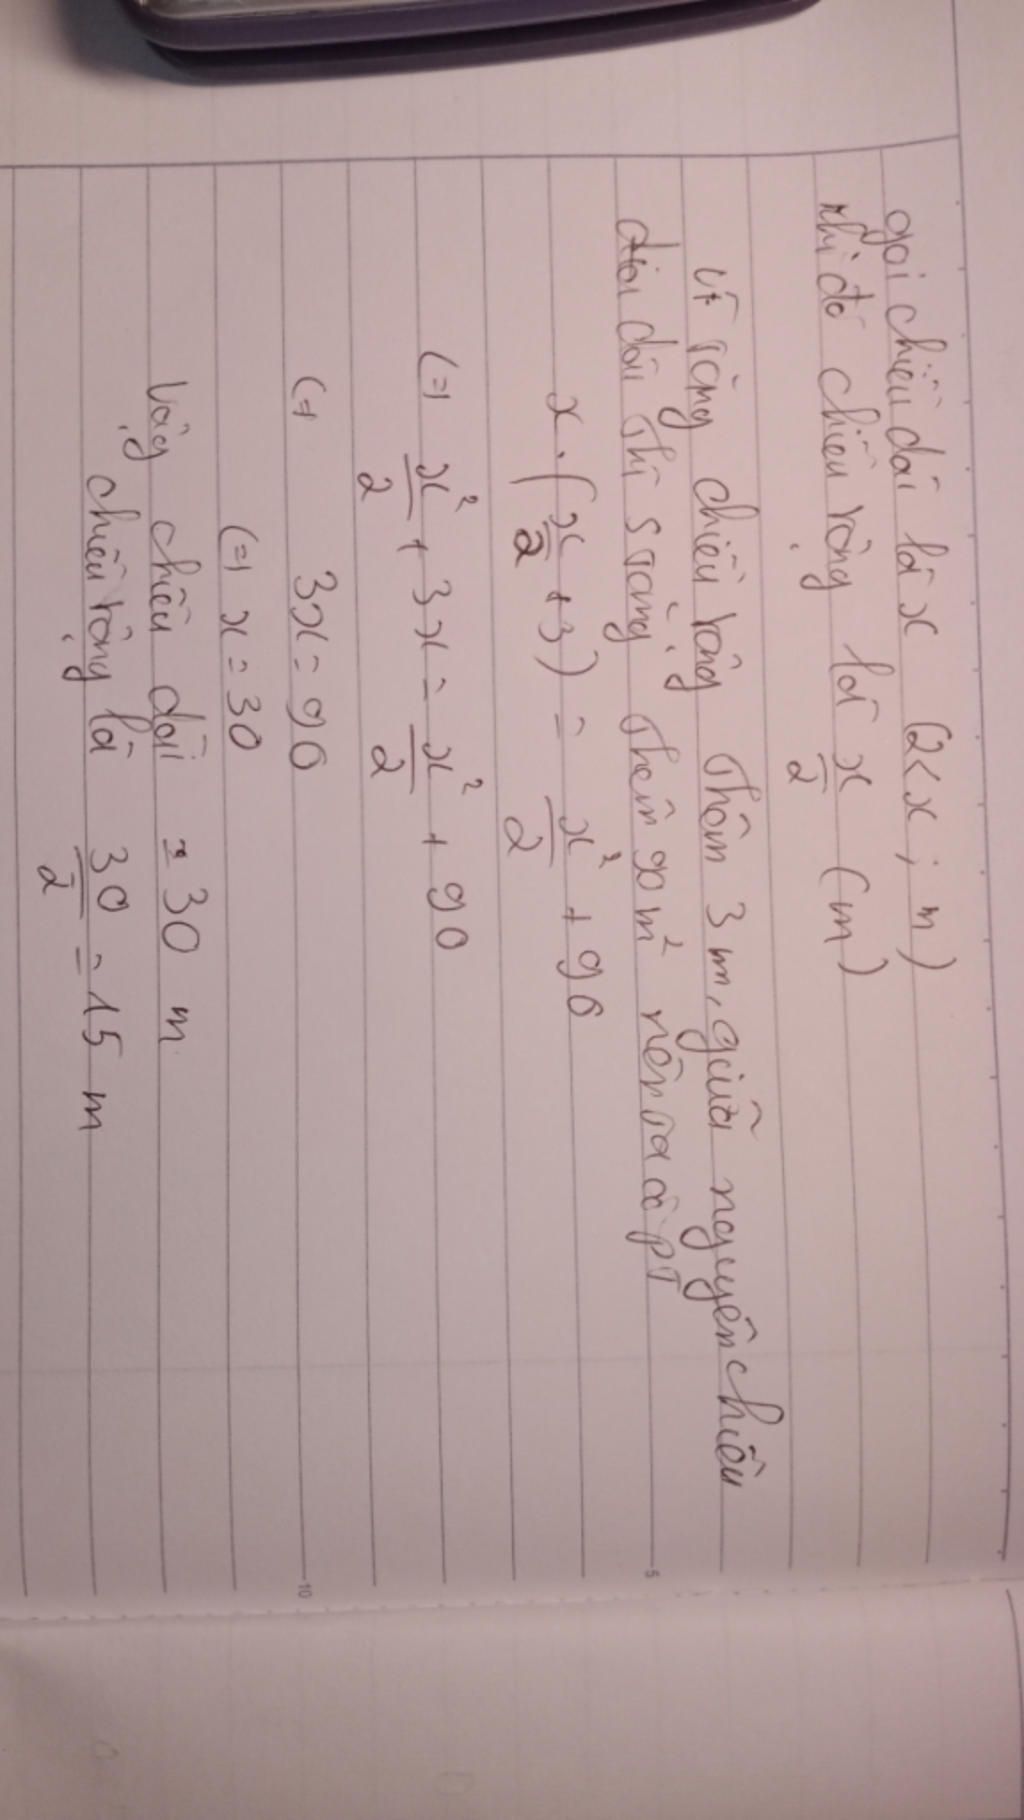 gọi chiều dài là x (2<x; m)
khi đó chiều rộng là x/2 (m)
vì tăng chiều rộng thêm 3 m, giữa nguyên chiều
dài dài thì S tăng thêm 90 m² nên ta có pt
x . (x/2 + 3) = x²/2 + 90
(=) x²/2 + 3x = x²/2 + 90
(=) 3x = 90
(=) x = 30
Vậy chiều dài = 30 m
chiều rộng là 30/2 = 15 m
5
10